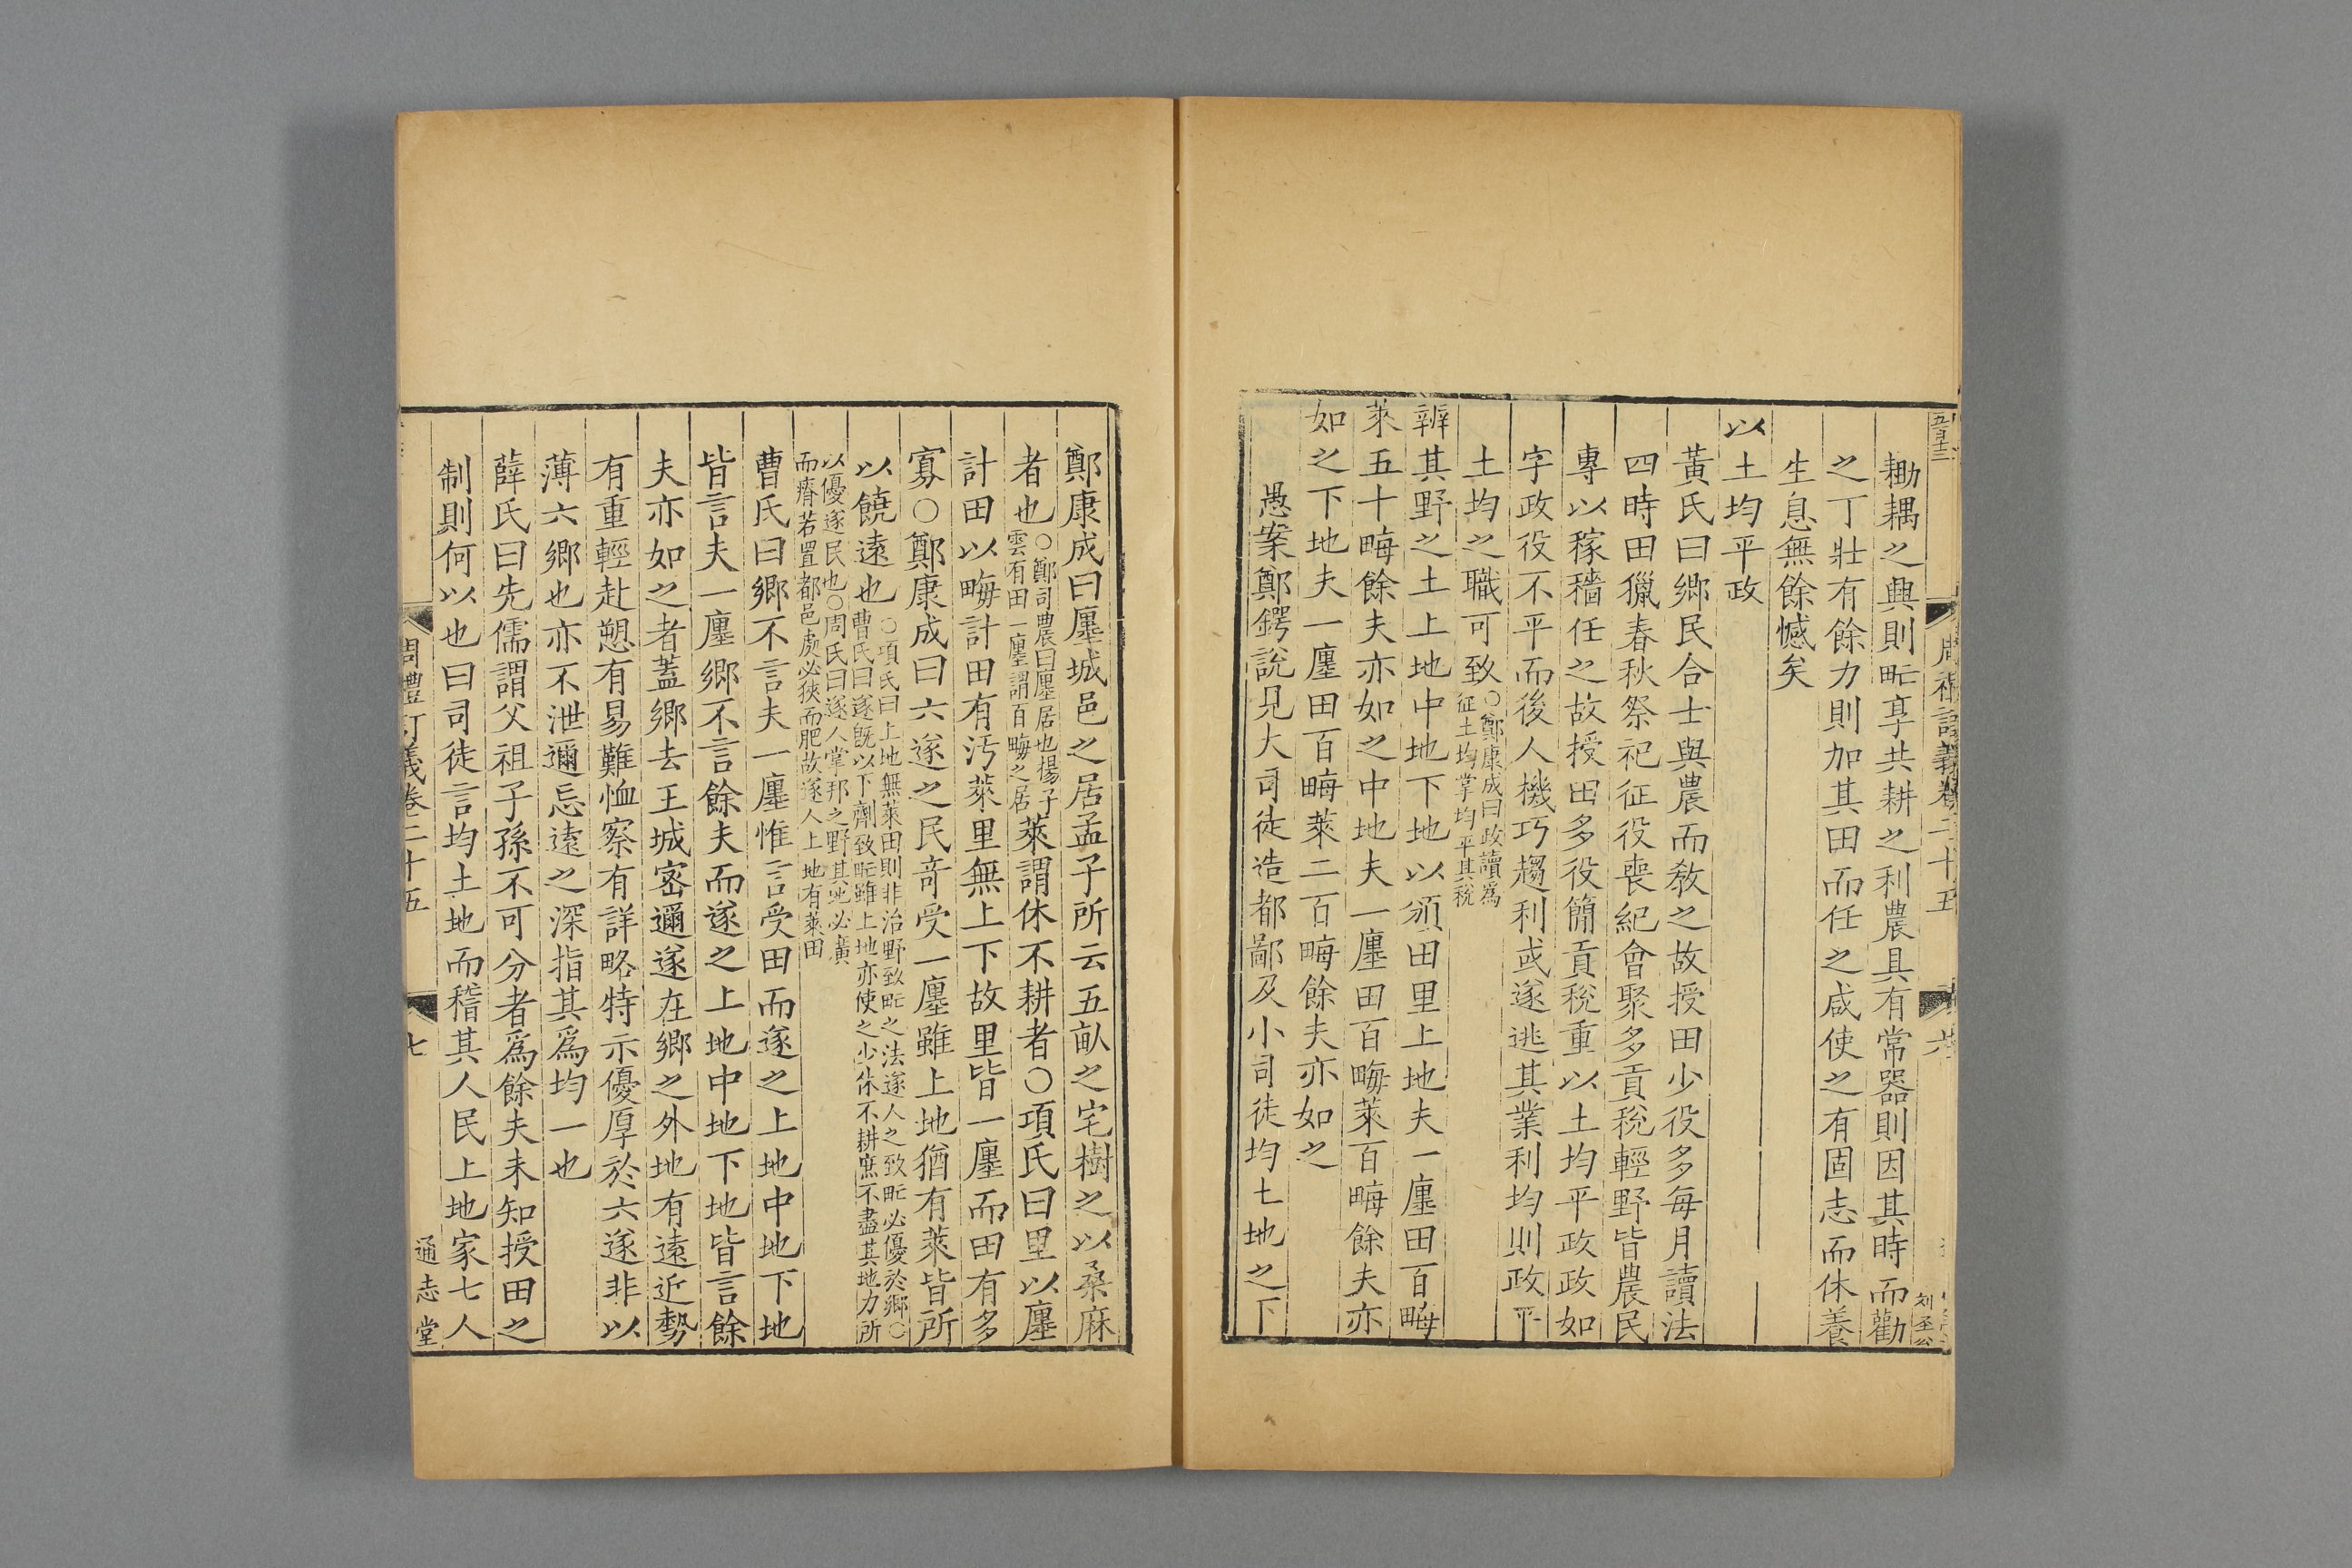 耡耦之興則甿享共耕之利農具有常器則因其時而勸
之丁壯有餘力則加其田而任之咸使之有固志而休養
生息無餘憾矣
以土均平政
黃氏曰鄉民合士與農而敎之故授田少役多每月讀法
四時田獵春秋祭祀征役喪紀會聚多貢稅輕野皆農民
專以稼穡任之故授田多役簡貢稅重以土均平政政如
字政役不平而後人機巧趨利或遂逃其業利均則政平
土均之職可致○鄭康成曰政讀爲
征土均掌均平其稅
辨其野之土上地中地下地以頒田里上地夫一廛田百畮
萊五十畮餘夫亦如之中地夫一廛田百畮萊百畮餘夫亦
如之下地夫一廛田百畮萊二百畮餘夫亦如之
愚案鄭鍔說見大司徒造都鄙及小司徒均土地之下
鄭康成曰廛城邑之居孟子所云五畝之宅樹之以桑麻
者也○鄭司農曰廛居也揚子
雲有田一廛謂百畮之居萊謂休不耕者○項氏曰里以廛
計田以畮計田有汚萊里無上下故里皆一廛而田有多
寡○鄭康成曰六遂之民竒受一廛雖上地猶有萊皆所
以饒遠也○項氏曰上地無萊田則非治野致甿之法遂人之致甿必優於鄉○
曹氏曰遂旣以下劑致甿雖上地亦使之少休不耕庶不盡其地力所
以優遂民也○周氏曰遂人掌邦之野其地必廣
而瘠若置都邑處必狹而肥故遂人上地有萊田
曹氏曰鄉不言夫一廛惟言受田而遂之上地中地下地
皆言夫一廛鄉不言餘夫而遂之上地中地下地皆言餘
夫亦如之者蓋鄉去王城密邇遂在鄉之外地有遠近勢
有重輕赴愬有易難恤察有詳略特示優厚於六遂非以
薄六鄉也亦不泄邇忘遠之深指其爲均一也
薛氏曰先儒謂父祖子孫不可分者爲餘夫未知授田之
制則何以也曰司徒言均土地而稽其人民上地家七人
周禮訂義卷二十五
七
通志堂